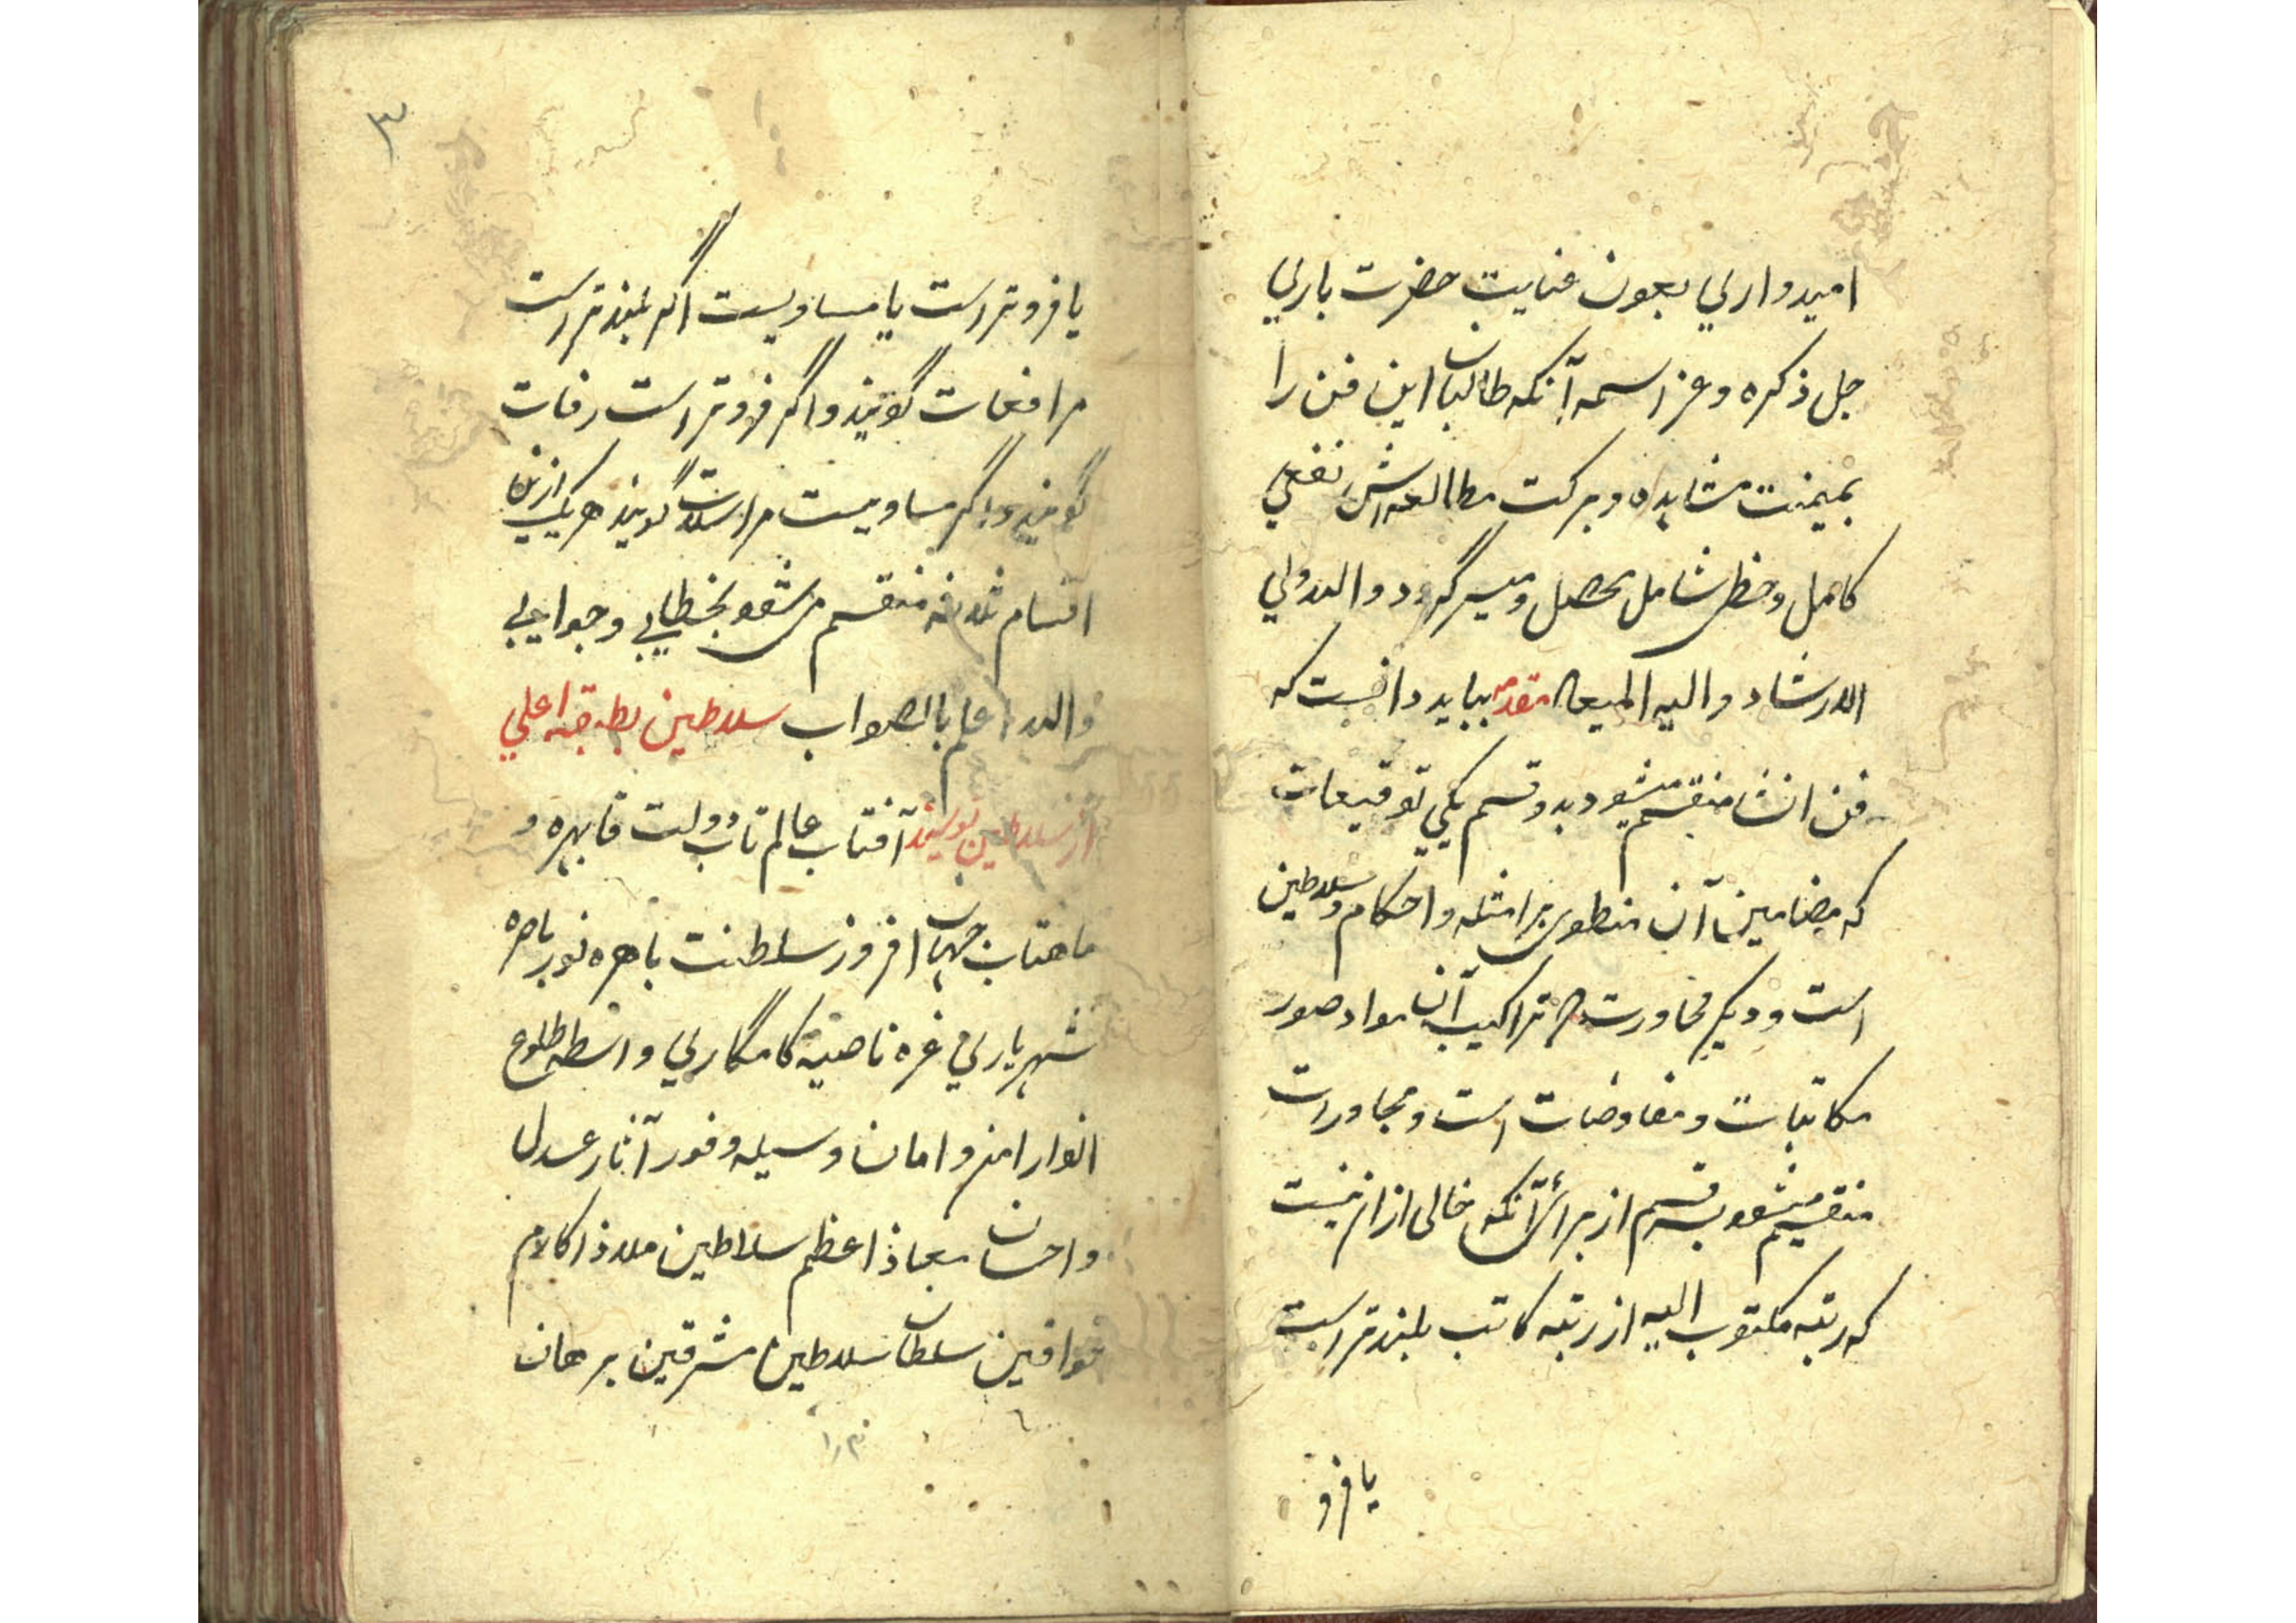 امیدواری بعون عنایت حضرت باری
جل ذکره و عز اسمه آنکه طالبان این فن را
بمیمنت مشاهده و برکت مطالعه اش نفعی
کامل و حظی شامل محصل و میسر گردد والله ولی
الارشاد والیه المیعاد مقدمه بباید دانست که
فن انشا منقسم میشود بدو قسم یکی توقیعات
که مضامین آن منطوی بر امثله و احکام سلاطین
است و دیگر محاورت که تراکیب آن مواد صور
مکاتبات و مفاوضات است و محاورات
منقسم میشود بسه قسم از برای آنکه خالی ازان نیست
که رتبه مکتوب الیه از رتبه کاتب بلندتر است
یا فرو
۳
یا فروتر است یا مساویست اگر بلندتر است
مرافعات گویند و اگر فروتر است رقعات
گویند و اگر مساویست مراسلات گویند هر یک ازین
اقسام ثلاثه منقسم میشود بخطابی و جوابی
والله اعلم بالصواب سلاطین بطبقه اعلی
از سلاطین نویسند آفتاب عالم تاب دولت قاهره و
ماهتاب جهان افروز سلطنت باهره نور باصره
شهریاری غره ناصیه کامگاری واسطه طلوع
انوار امن و امان وسیله وفور آثار عدل
و احسان معاذ اعظم سلاطین ملاذ اکارم
خواقین سلطان سلاطین مشرقین برهان